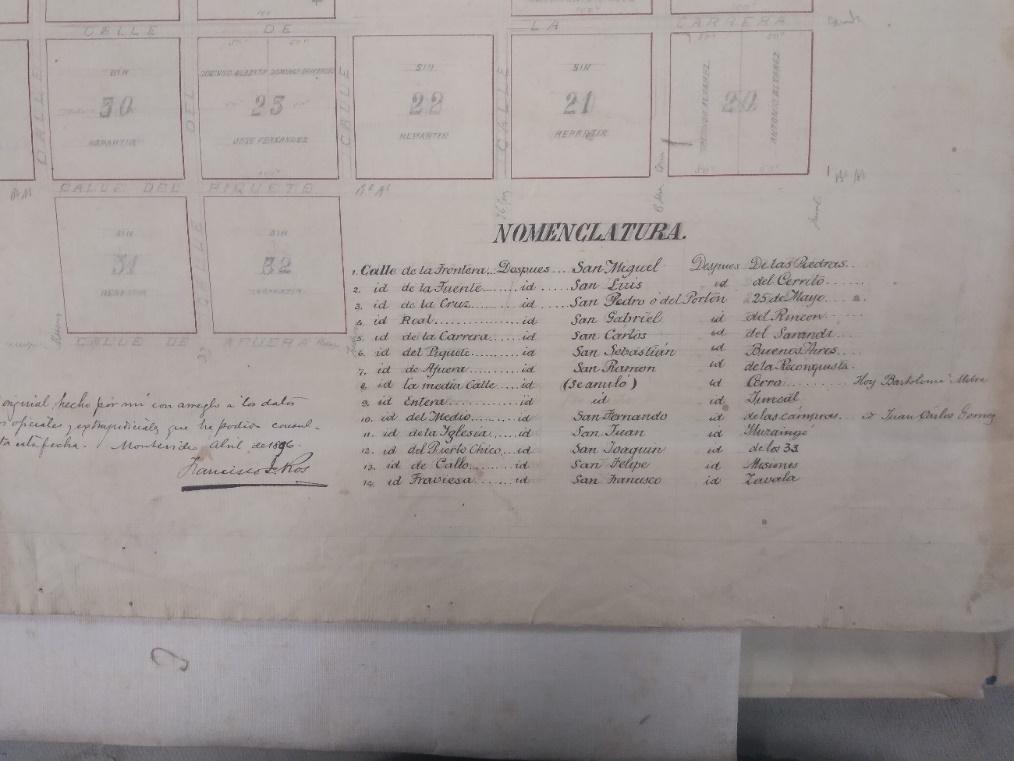 CALLE DE LA CARRERA
CALLE
SIN
30
REPARTIR
DEL
25
JOSE FERNANDEZ
CALLE
SIN
22
REPARTIR
CALLE
SIN
21
REPARTIR
20
ANTONIO ALVAREZ
CALLE DEL PIQUETE
SIN
31
REPARTIR
CALLE
SIN
32
REPARTIR
CALLE DE AFUERA
NOMENCLATURA.
1. Calle de la Frontera.. Despues... San Miguel Despues De las Piedras..
2. id de la Fuente...... id..... San Luis id del Cerrito...
3. id de la Cruz....... id ...... San Pedro o del Portón 25 de Mayo
4. id Real............ id San Gabriel id del Rincon
5. id de la Carrera.... id San Carlos id del Sarandi
6. id del Piquete...... id San Sebastián id Buenos Aires....
7. id de Afuera........ id San Ramon id de la Reconquista.
8. id la media Calle id (Se anuló) id Cerro......... Hoy Bartolomé Mitre
9. id Entera......... id id id
10. id del Medio....... id San Fernando id de las cámaras. o Juan Carlos Gomez
11. id de la Iglesia... id San Juan id
12. id del Puerto Chico. id San Joaquin id de los 33
13. id de Callo...... id San Felipe id Misiones
14. id Traviesa...... id San Francisco id Zavala
original hecho por mí con arreglo a los datos
oficiales y extraoficiales que he podido consul-
ta esta fecha. Montevideo Abril de 1896.
Francisco Ros